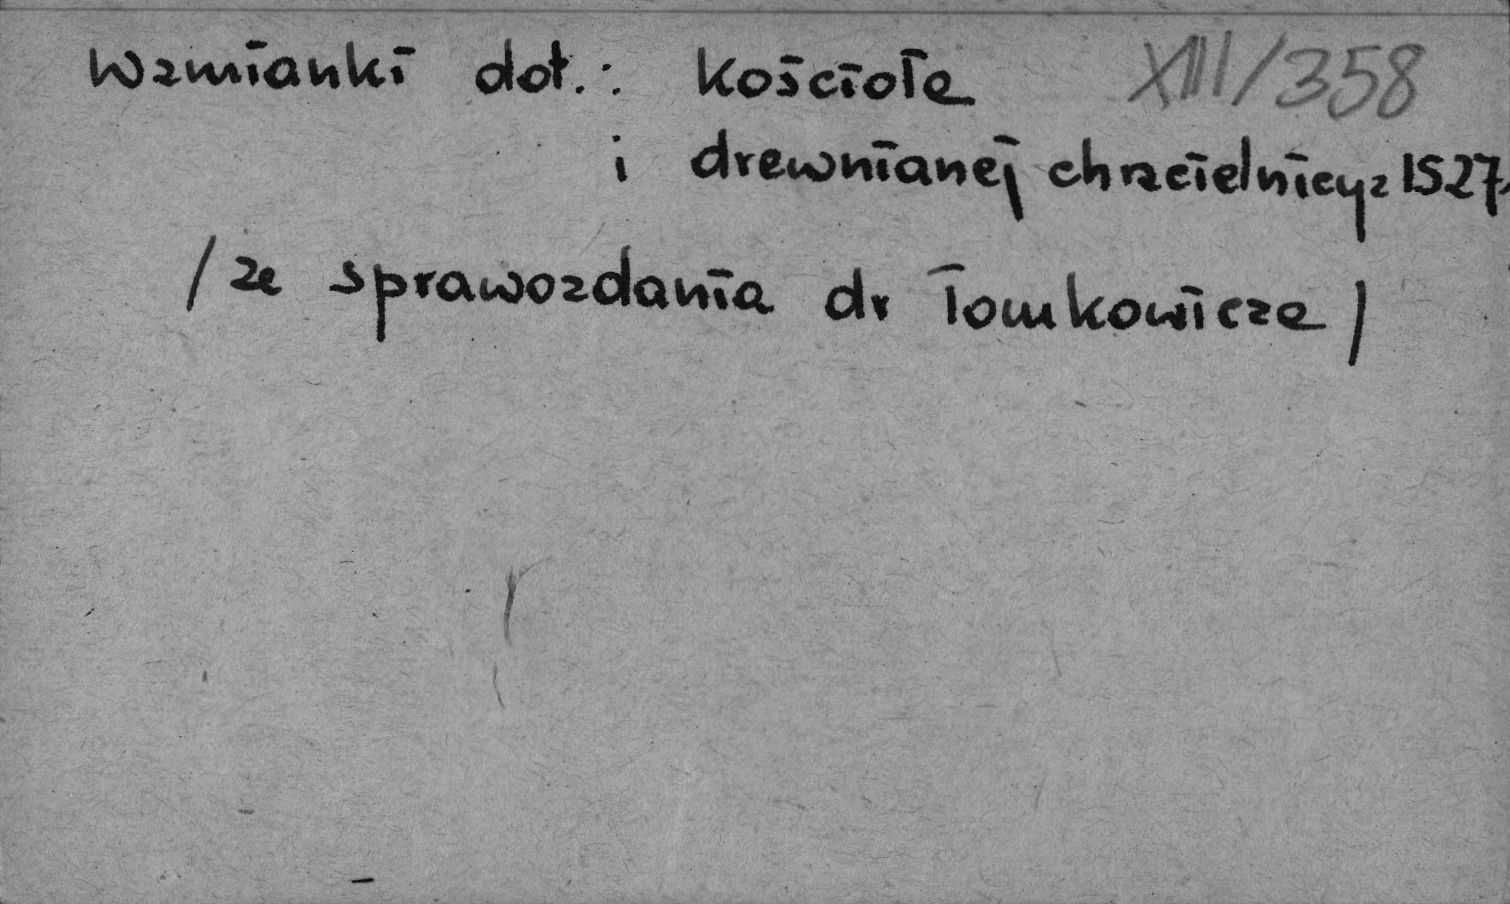 Wzmianki dot.: kościoła XIII/358
i drewnianej chrzcielnicy z 1527
/ze sprawozdania dr Tomkowicza/